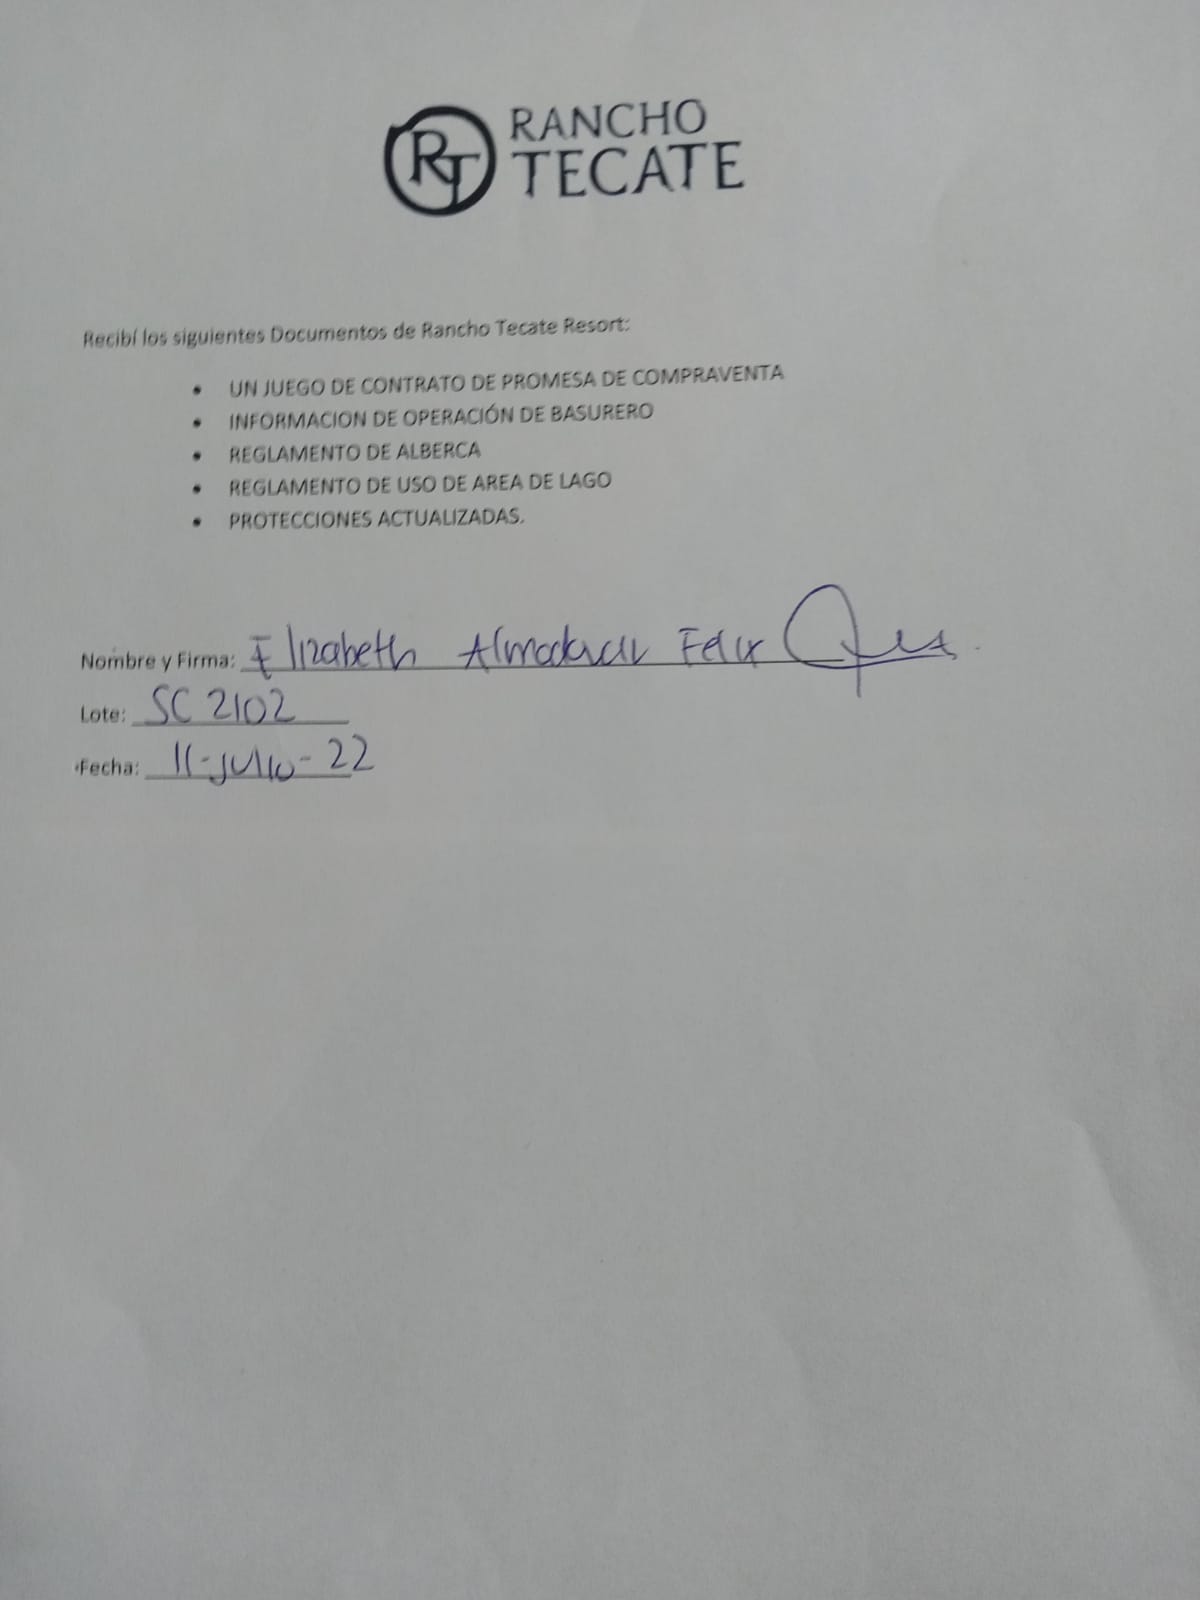 RT RANCHO
TECATE
Recibí los siguientes Documentos de Rancho Tecate Resort:
• UN JUEGO DE CONTRATO DE PROMESA DE COMPRAVENTA
• INFORMACION DE OPERACIÓN DE BASURERO
• REGLAMENTO DE ALBERCA
• REGLAMENTO DE USO DE AREA DE LAGO
• PROTECCIONES ACTUALIZADAS.
Nombre y Firma: Elizabeth Almodovar Felix
Lote: SC 2102
Fecha: 11-julio-22